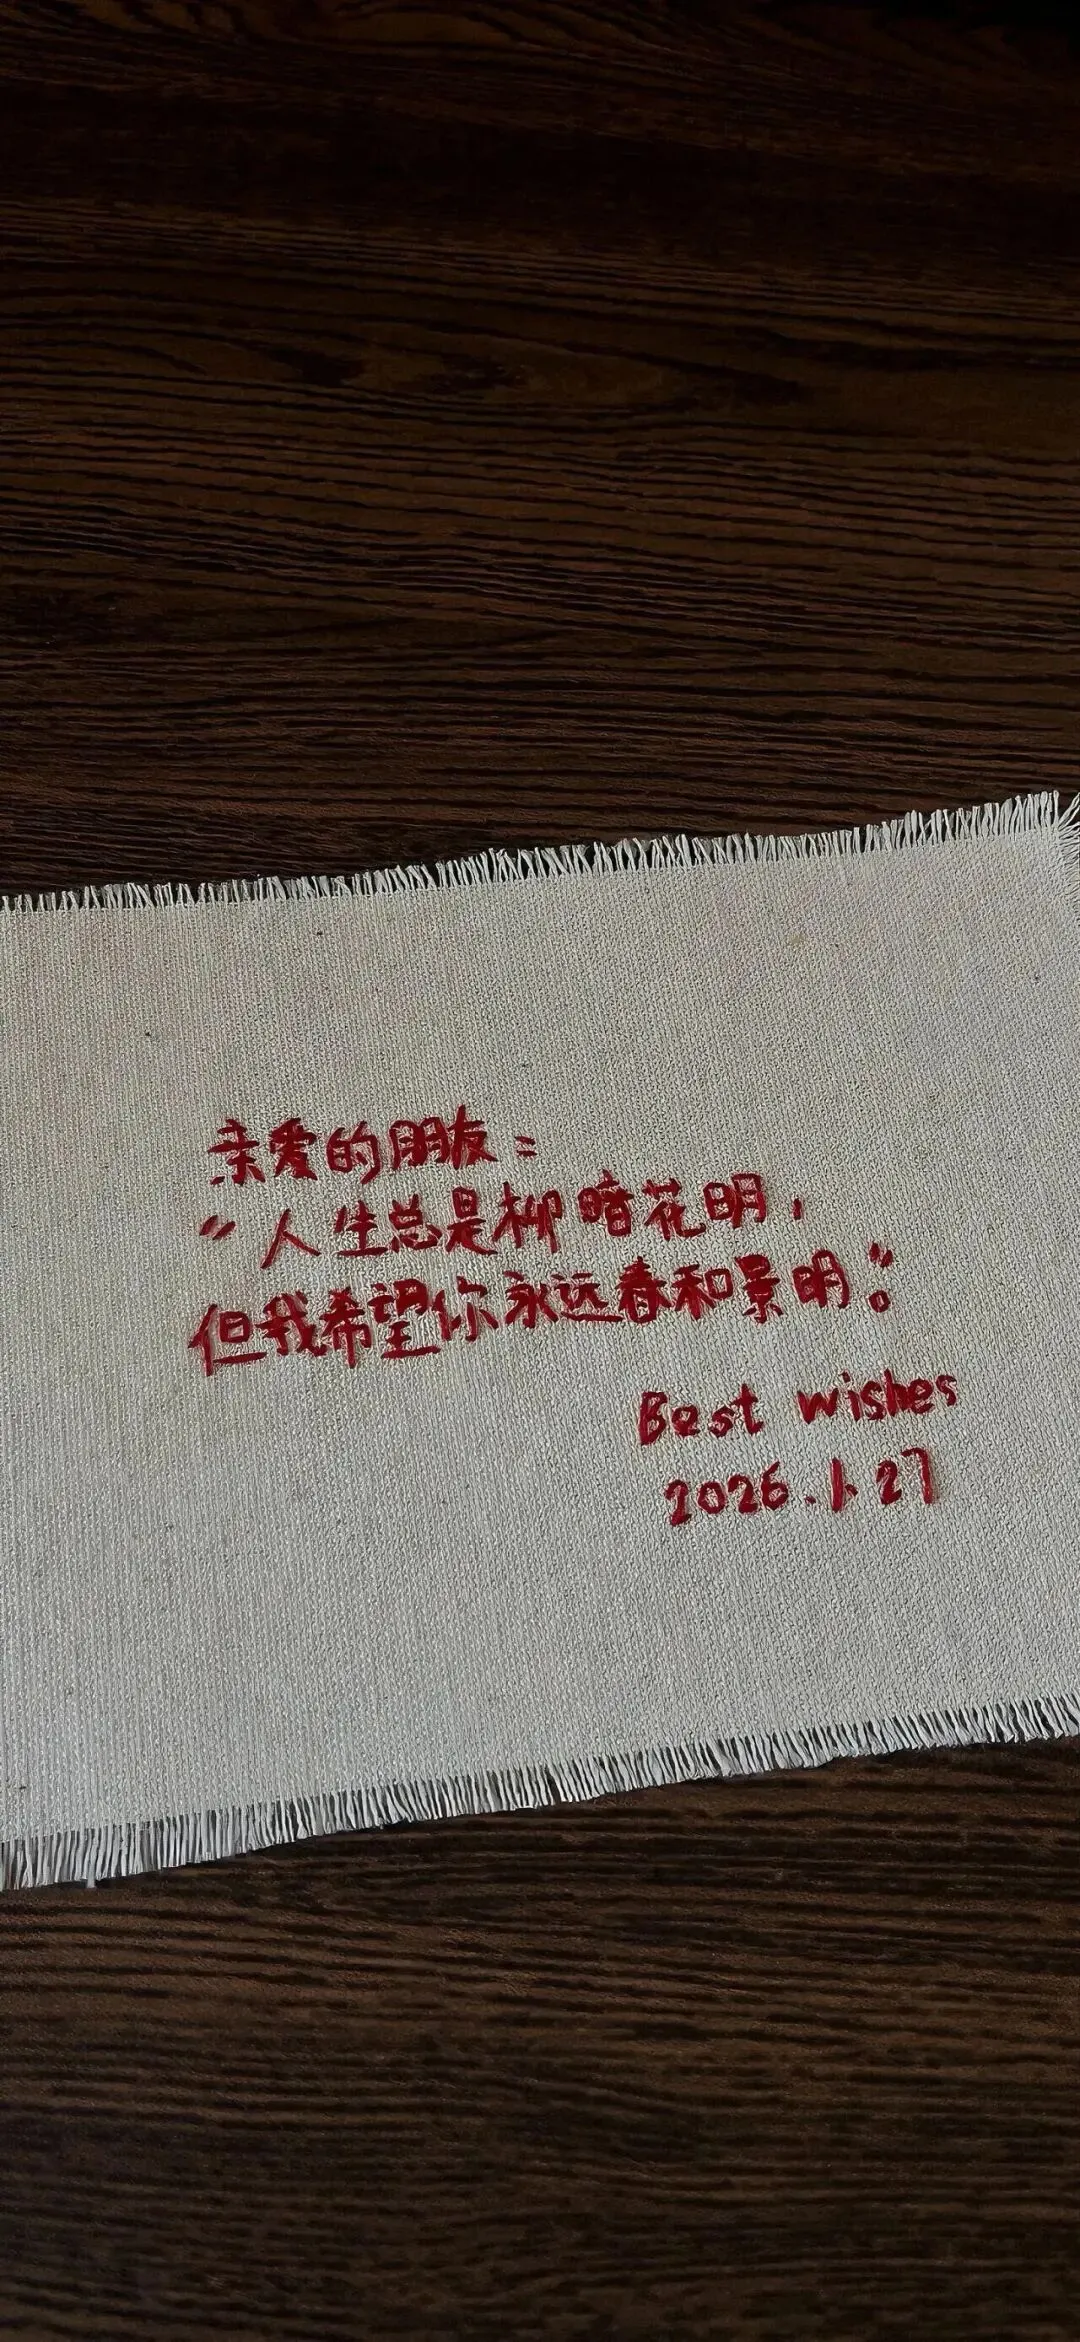 亲爱的朋友：
“人生总是柳暗花明，
但我希望你永远春和景明。”
Best wishes
2026.1.27